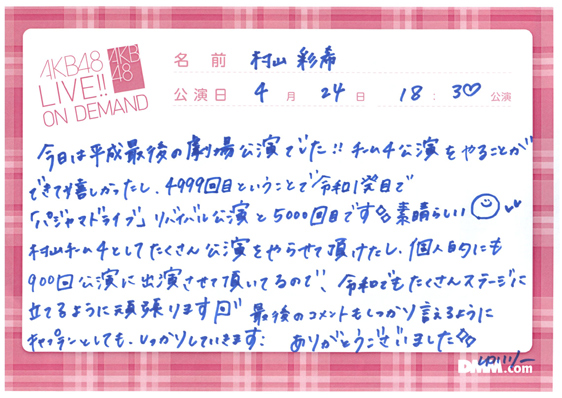 AKB48
LIVE!!
ON DEMAND
AKB
48
名前 村山彩希
公演日 4月24日 18:30公演
今日は平成最後の劇場公演でした!! チーム4公演をやることが
できて嬉しかったし、4999回目ということで令和1発目で
「パジャマドライブ」リバイバル公演と5000回目です 素晴らしい
村山チーム4としてたくさん公演をやらせて頂けたし、個人的にも
900回公演に出演させて頂いてるので、令和でもたくさんステージに
立てるように頑張ります 最後のコメントもしっかり言えるように
キャプテンとしても、しっかりしていきます: ありがとうございました
DMM.com